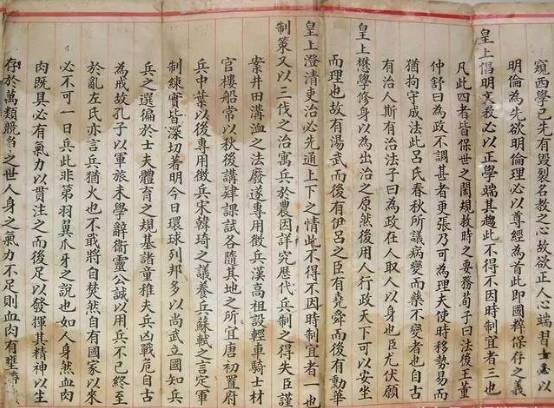 窺西學已先有毀裂名教之心故欲正人心端習士必以
明倫為先欲明倫理必以尊經為首此即國粹保存之義
皇上倡明文教必以正學端其趨此不得不因時制宜者三也
凡此四者皆保世之閎規救時之要務荀子曰法後王董
仲舒曰為政不調甚者更張乃可為理夫使時移勢易而
猶拘守成法此呂氏春秋所議病變而藥不變者也自古
有治人斯有治法子曰為政在人取人以身也臣尤伏願
皇上懋學修身以為出治之原然後用人行政天下可以安坐
而理也故有湯武而後有伊呂之臣有堯舜而後有勳華
皇上澄清吏治必先通上下之情此不得不因時制宜者一也
制策又以三代之治寓兵於農因詳究歷代兵制之得失臣謹
案井田溝洫之法廢遂專用徵兵漢高祖設輕車騎士材
官樓船常以秋後講肄課試各隨其地之所宜唐初置府
兵中葉以後專用徵兵宋韓琦之議養兵蘇軾之言定軍
制練實皆深切著明今日環球列邦多以尚武立國知兵
兵之選徧於士夫體育之規基諸童稚夫兵凶戰危自古
為戒故孔子以軍旅未學辭衞靈公誠以用兵不已終至
於亂左氏亦言兵猶火也不戢將自焚然自有國家以來
必不可一日去兵此非第羽翼爪牙之說也如人身然血肉
肉既具必有氣力以貫注之而後足以發揮其精神以生
存於萬類競爭之世人身之氣力不足則血肉有壅